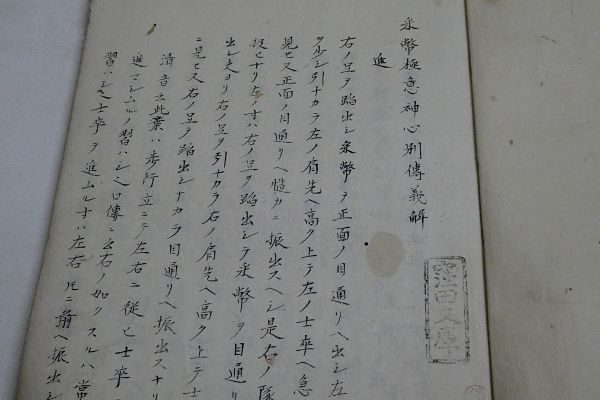 采幣極意神心別傳義解
進
右ノ足ヲ蹈出シ采幣ヲ正面ノ目通リヘ出シ左
ヲ少シ引ナカラ左ノ肩先ヘ高ク上テ左ノ士卒ヘ急
見セ又正面ノ目通リヘ慥カニ振出スヘシ是右ノ隊
投ヒナリ左ノ方ハ右ノ足ヲ蹈出シテ采幣ヲ目通リ
出シ夫ヨリ右ノ足ヲ引ナカラ右ノ肩先ヘ高ク上テ士
ニ見セ又右ノ足ヲ蹈出シナカラ目通リヘ振出スナリ
清音云此業ハ歩行立ニテ左右ニ從ヒ士卒
進マシムルノ習ハシ口傳ニ云右ノ如クスルハ常
習ハシ士卒ヲ進ムル方ハ左右ニ前ヘ振出シ
窪田文庫